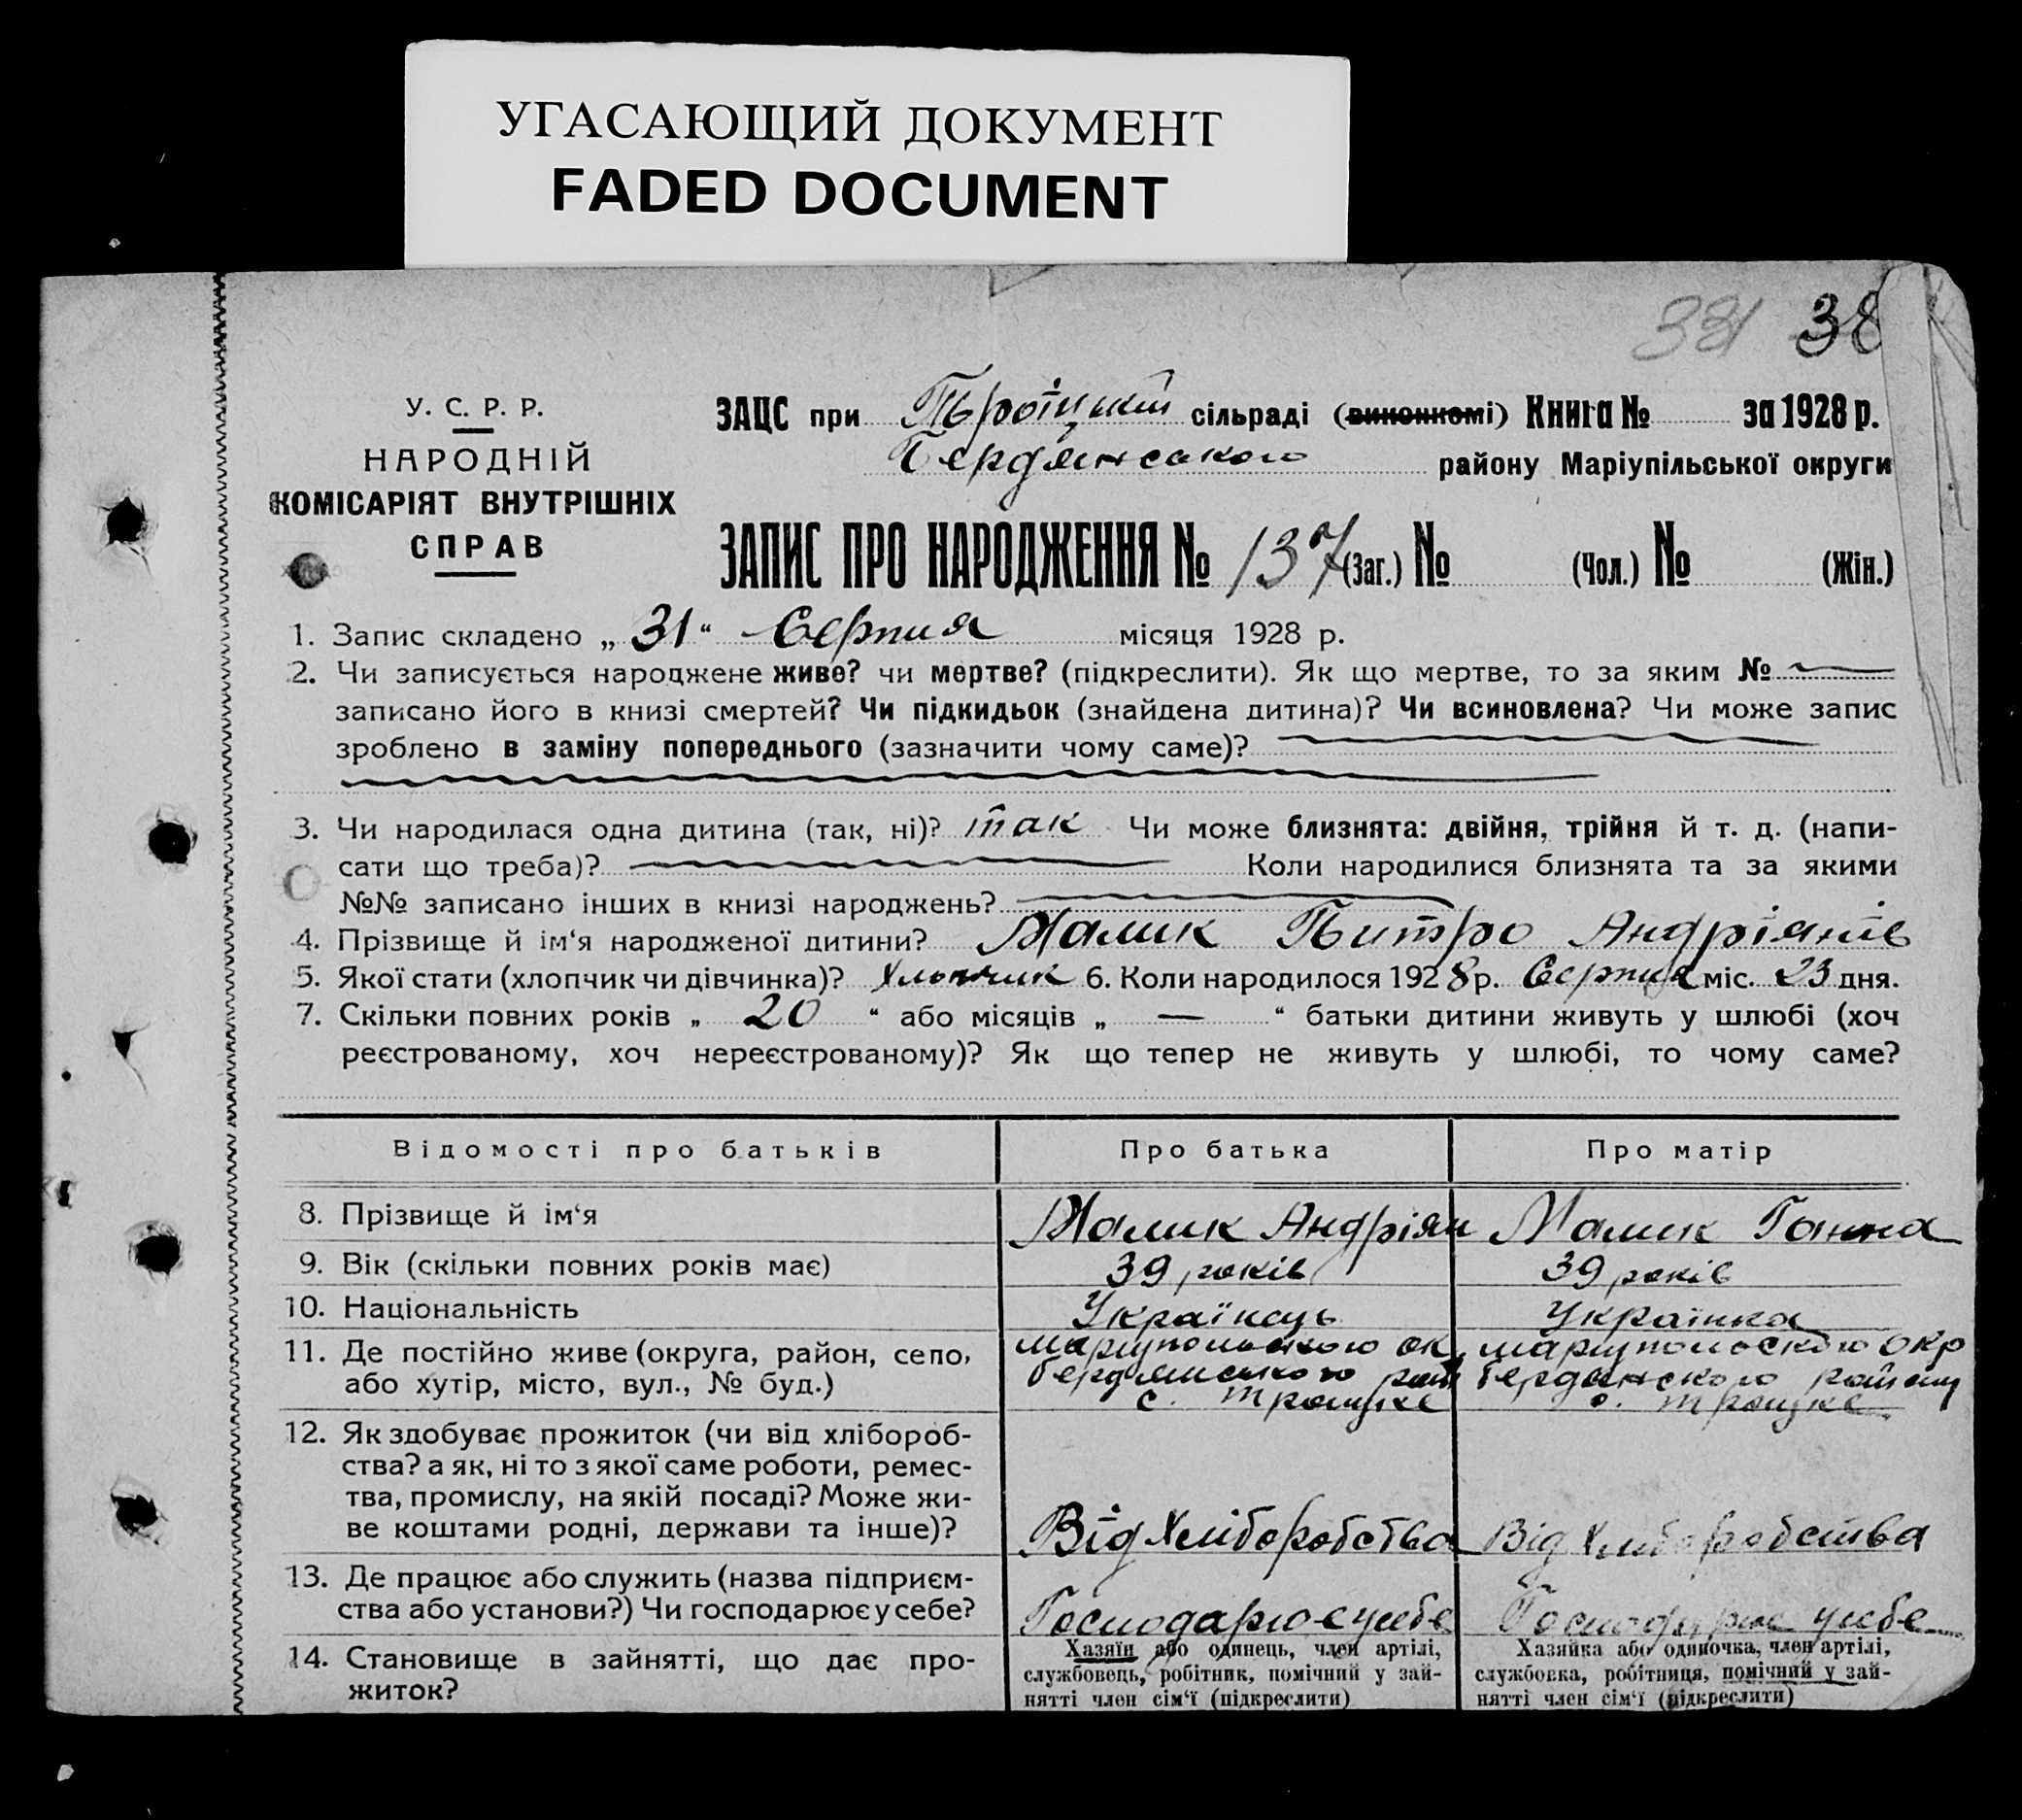 УГАСАЮЩИЙ ДОКУМЕНТ
FADED DOCUMENT
331 38
У. С. Р. Р.
НАРОДНІЙ
КОМІСАРІЯТ ВНУТРІШНІХ
СПРАВ
ЗАЦС при сільраді (виконкомі) Книга № за 1928 р.
Бердянського району Маріупільської округи
ЗАПИС ПРО НАРОДЖЕННЯ № 137 (Заг.) № (Чол.) № (Жін.)
1. Запис складено „ 31 “ Серпня місяця 1928 р.
2. Чи записується народжене живе? чи мертве? (підкреслити). Як що мертве, то за яким №
записано його в книзі смертей? Чи підкидьок (знайдена дитина)? Чи всиновлена? Чи може запис
зроблено в заміну попереднього (зазначити чому саме)?
3. Чи народилася одна дитина (так, ні)? так Чи може близнята: двійня, трійня й т. д. (напи-
сати що треба)? Коли народилися близнята та за якими
№№ записано інших в книзі народжень?
4. Прізвище й ім‘я народженої дитини? Малик Андріянів
5. Якої стати (хлопчик чи дівчинка)? Хлопчик 6. Коли народилося 1928 р. Серпня міс. 23 дня.
7. Скільки повних років „ 20 “ або місяців „ — “ батьки дитини живуть у шлюбі (хоч
реєстрованому, хоч нереєстрованому)? Як що тепер не живуть у шлюбі, то чому саме?
Відомості про батьків Про батька Про матір
8. Прізвище й ім‘я Малик Андріян Малик Ганна
9. Вік (скільки повних років має) 39 років 39 років
10. Національність Українець Українка
11. Де постійно живе (округа, район, село,
або хутір, місто, вул., № буд.)
маріупольского ок. маріупольского окр
бердянського бердянского району
с. с.
12. Як здобуває прожиток (чи від хлібороб-
ства? а як, ні то з якої саме роботи, ремес-
тва, промислу, на якій посаді? Може жи-
ве коштами родні, держави та інше)? Від Хліборобства Від Хліборобства
13. Де працює або служить (назва підприєм-
ства або установи?) Чи господарює у себе? Господарює у себе Господарює у себе
14. Становище в зайнятті, що дає про-
житок?
Хазяїн або одинець, член артілі,
службовець, робітник, помічний у зай-
нятті член сім‘ї (підкреслити)
Хазяйка або одиночка, член артілі,
службовка, робітниця, помічний у зай-
нятті член сім‘ї (підкреслити)